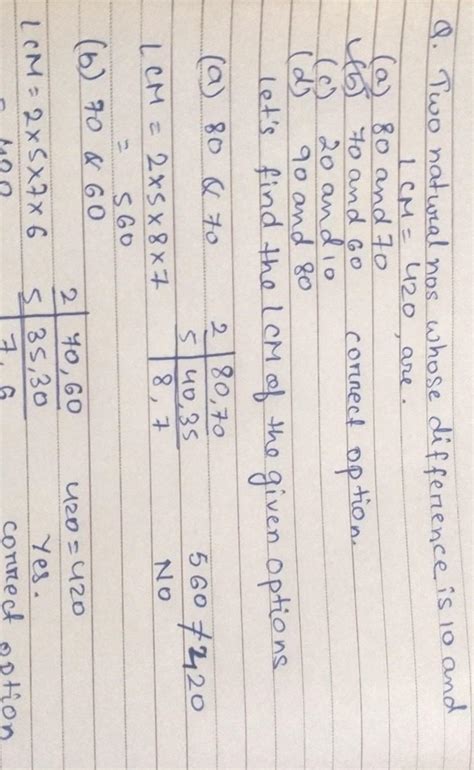 Q. Two natural nos whose difference is 10 and
LCM = 420, are.
(a) 80 and 70
(b) 70 and 60 correct option.
(c) 20 and 10
(d) 90 and 80
let's find the LCM of the given options
(a) 80 & 70
2 | 80, 70
5 | 40, 35
8, 7
LCM = 2×5×8×7
= 560
560 ≠ 420
No
(b) 70 & 60
2 | 70, 60
5 | 35, 30
7, 6
LCM = 2×5×7×6
= 420
420 = 420
Yes.
correct option